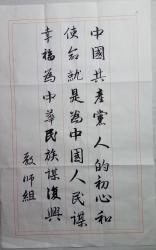 中國共產黨人的初心和
使命就是為中國人民謀
幸福為中華民族謀復興
教師組